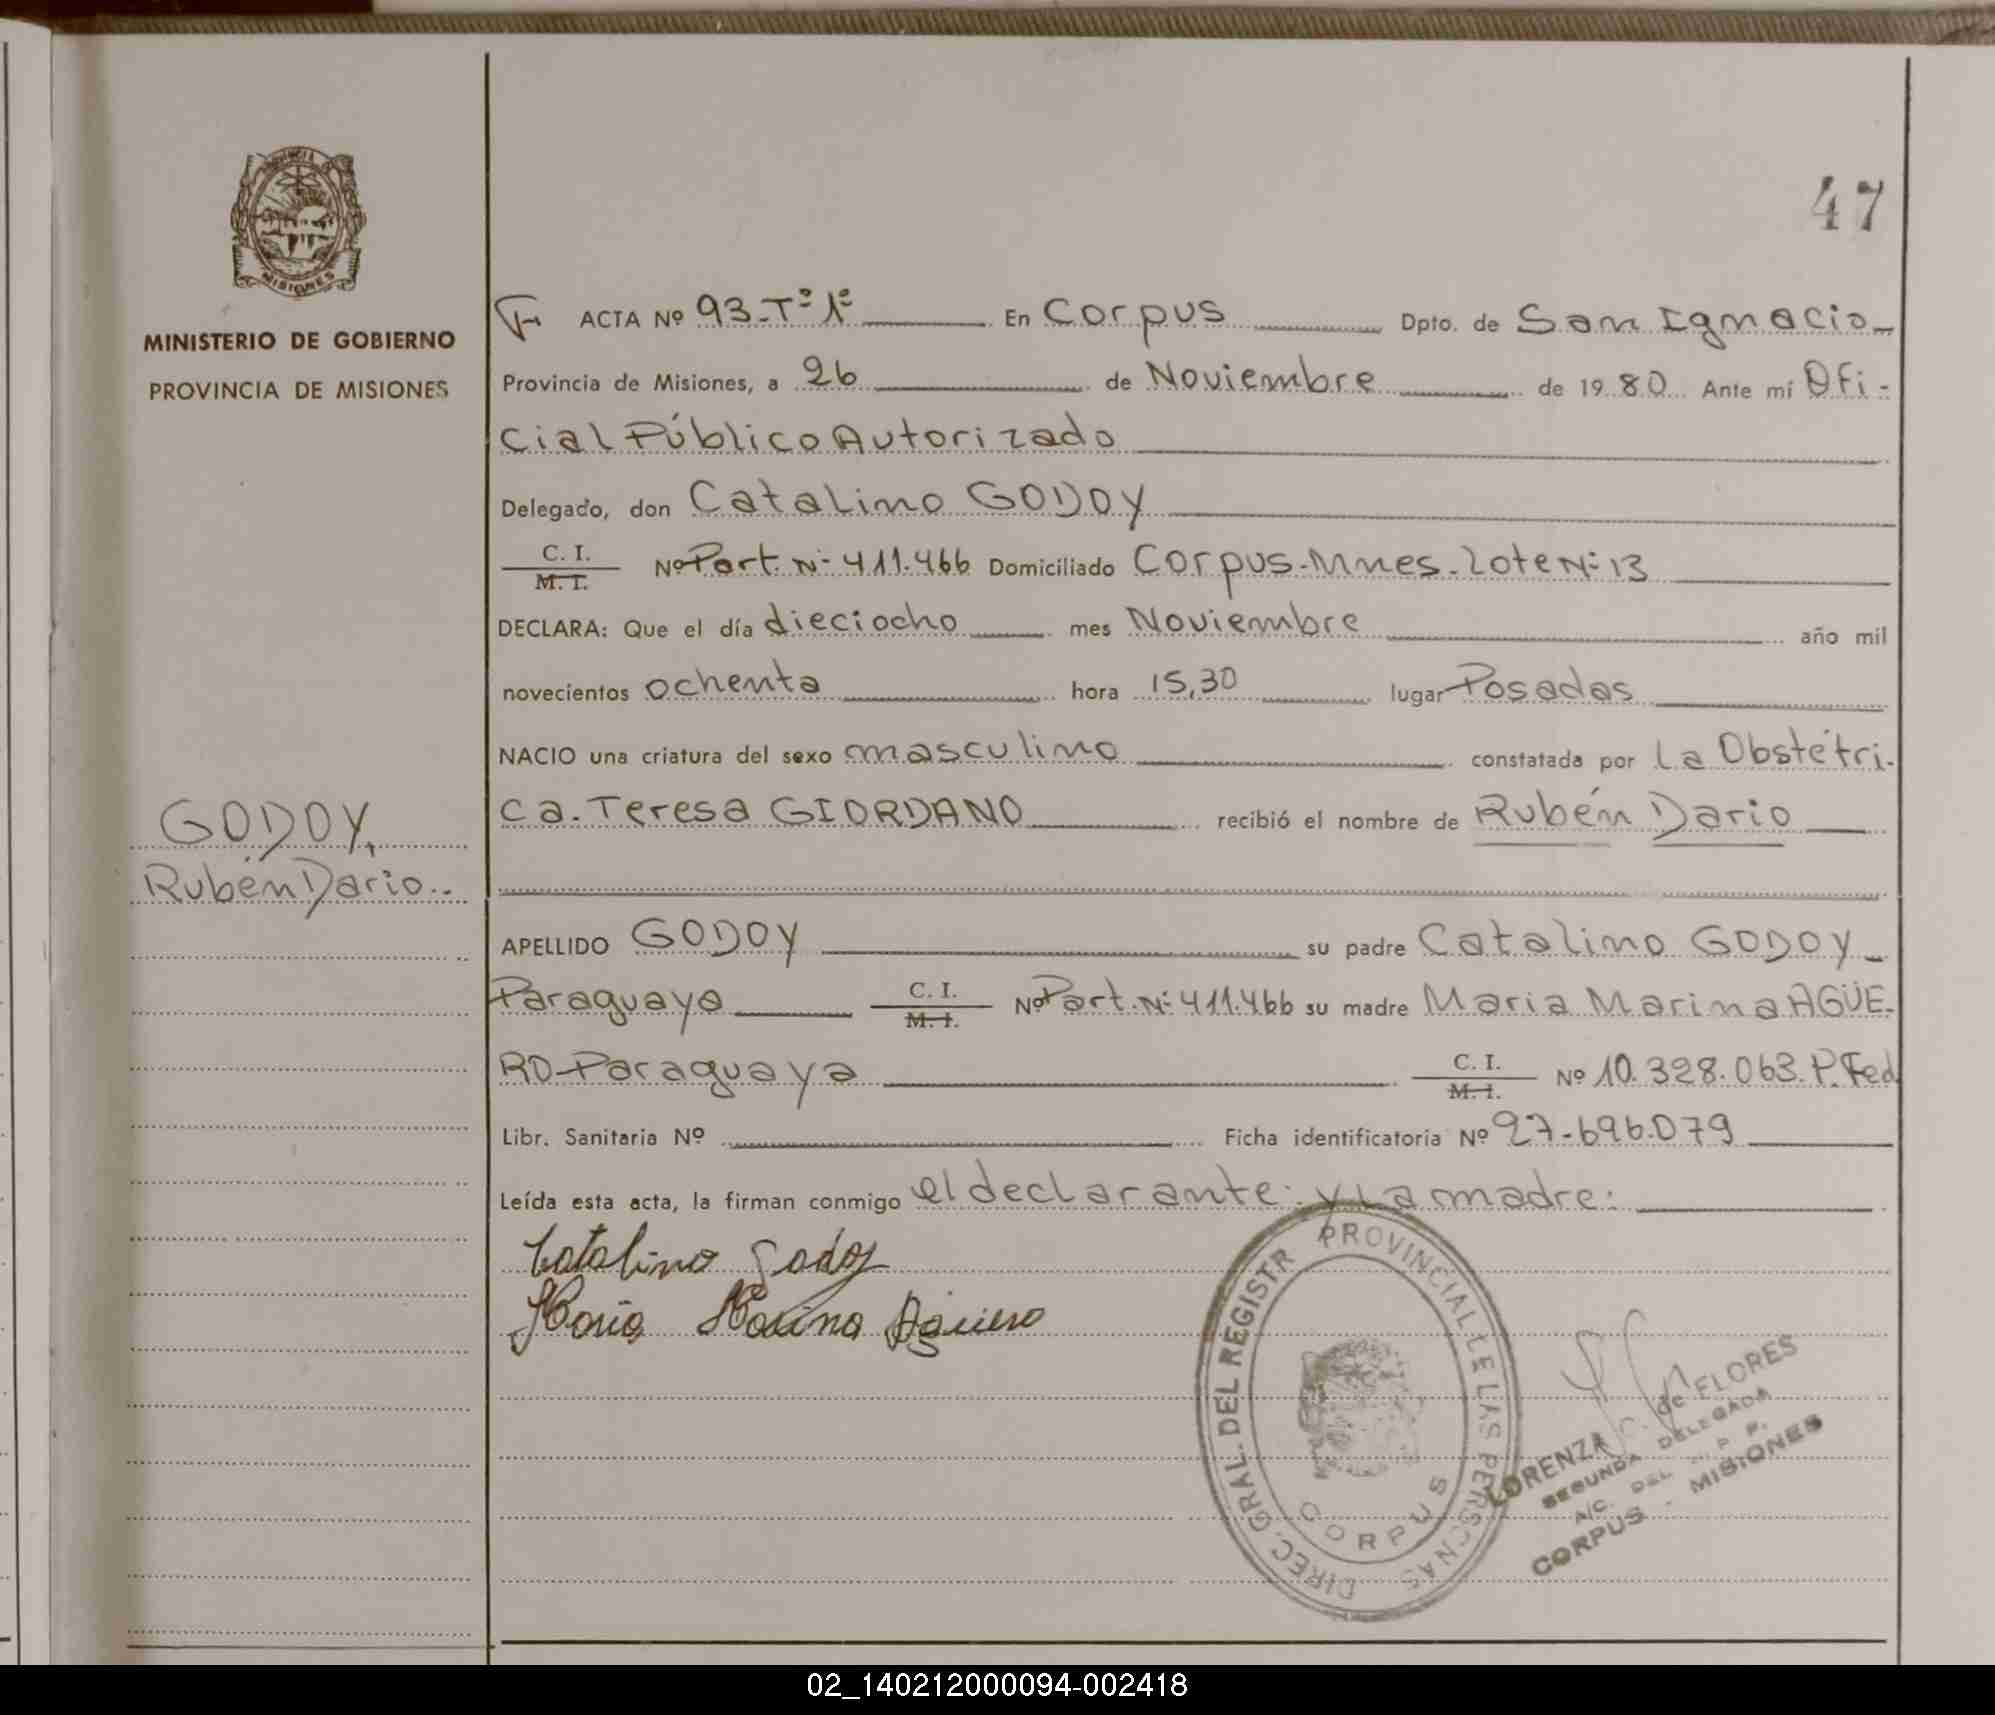 PROVINCIA
MISIONES
MINISTERIO DE GOBIERNO
PROVINCIA DE MISIONES
GODOY,
Rubén Dario..
47
ACTA Nº 93-Tº 1º En Corpus Dpto. de San Ignacio
Provincia de Misiones, a 26 de Noviembre de 1980 Ante mí Ofi-
cial Público Autorizado
Delegado, don Catalino GODOY
C. I.
M. I. Nº Part. Nº 411.466 Domiciliado Corpus-Mnes. Lote Nº 13
DECLARA: Que el día dieciocho mes Noviembre año mil
novecientos ochenta hora 15,30 lugar Posadas
NACIO una criatura del sexo masculino constatada por La Obstétri-
ca. Teresa GIORDANO recibió el nombre de Rubén Dario
APELLIDO GODOY su padre Catalino GODOY
Paraguayo C. I. M. I. Nº Part. Nº 411.466 su madre Maria Marina AGÜE-
RO-Paraguaya C. I. M. I. Nº 10.328.063. P. Fed
Libr. Sanitaria Nº Ficha identificatoria Nº 27-696.079
Leída esta acta, la firman conmigo el declarante y la madre:
Catalino Godoy
Maria Marina Agüero
DIREC. GRAL. DEL REGISTR PROVINCIAL DE LAS PERSONAS
CORPUS
LORENZA C. de FLORES
SEGUNDA DELEGADA
A/C. DEL P. P.
CORPUS - MISIONES
02_140212000094-002418